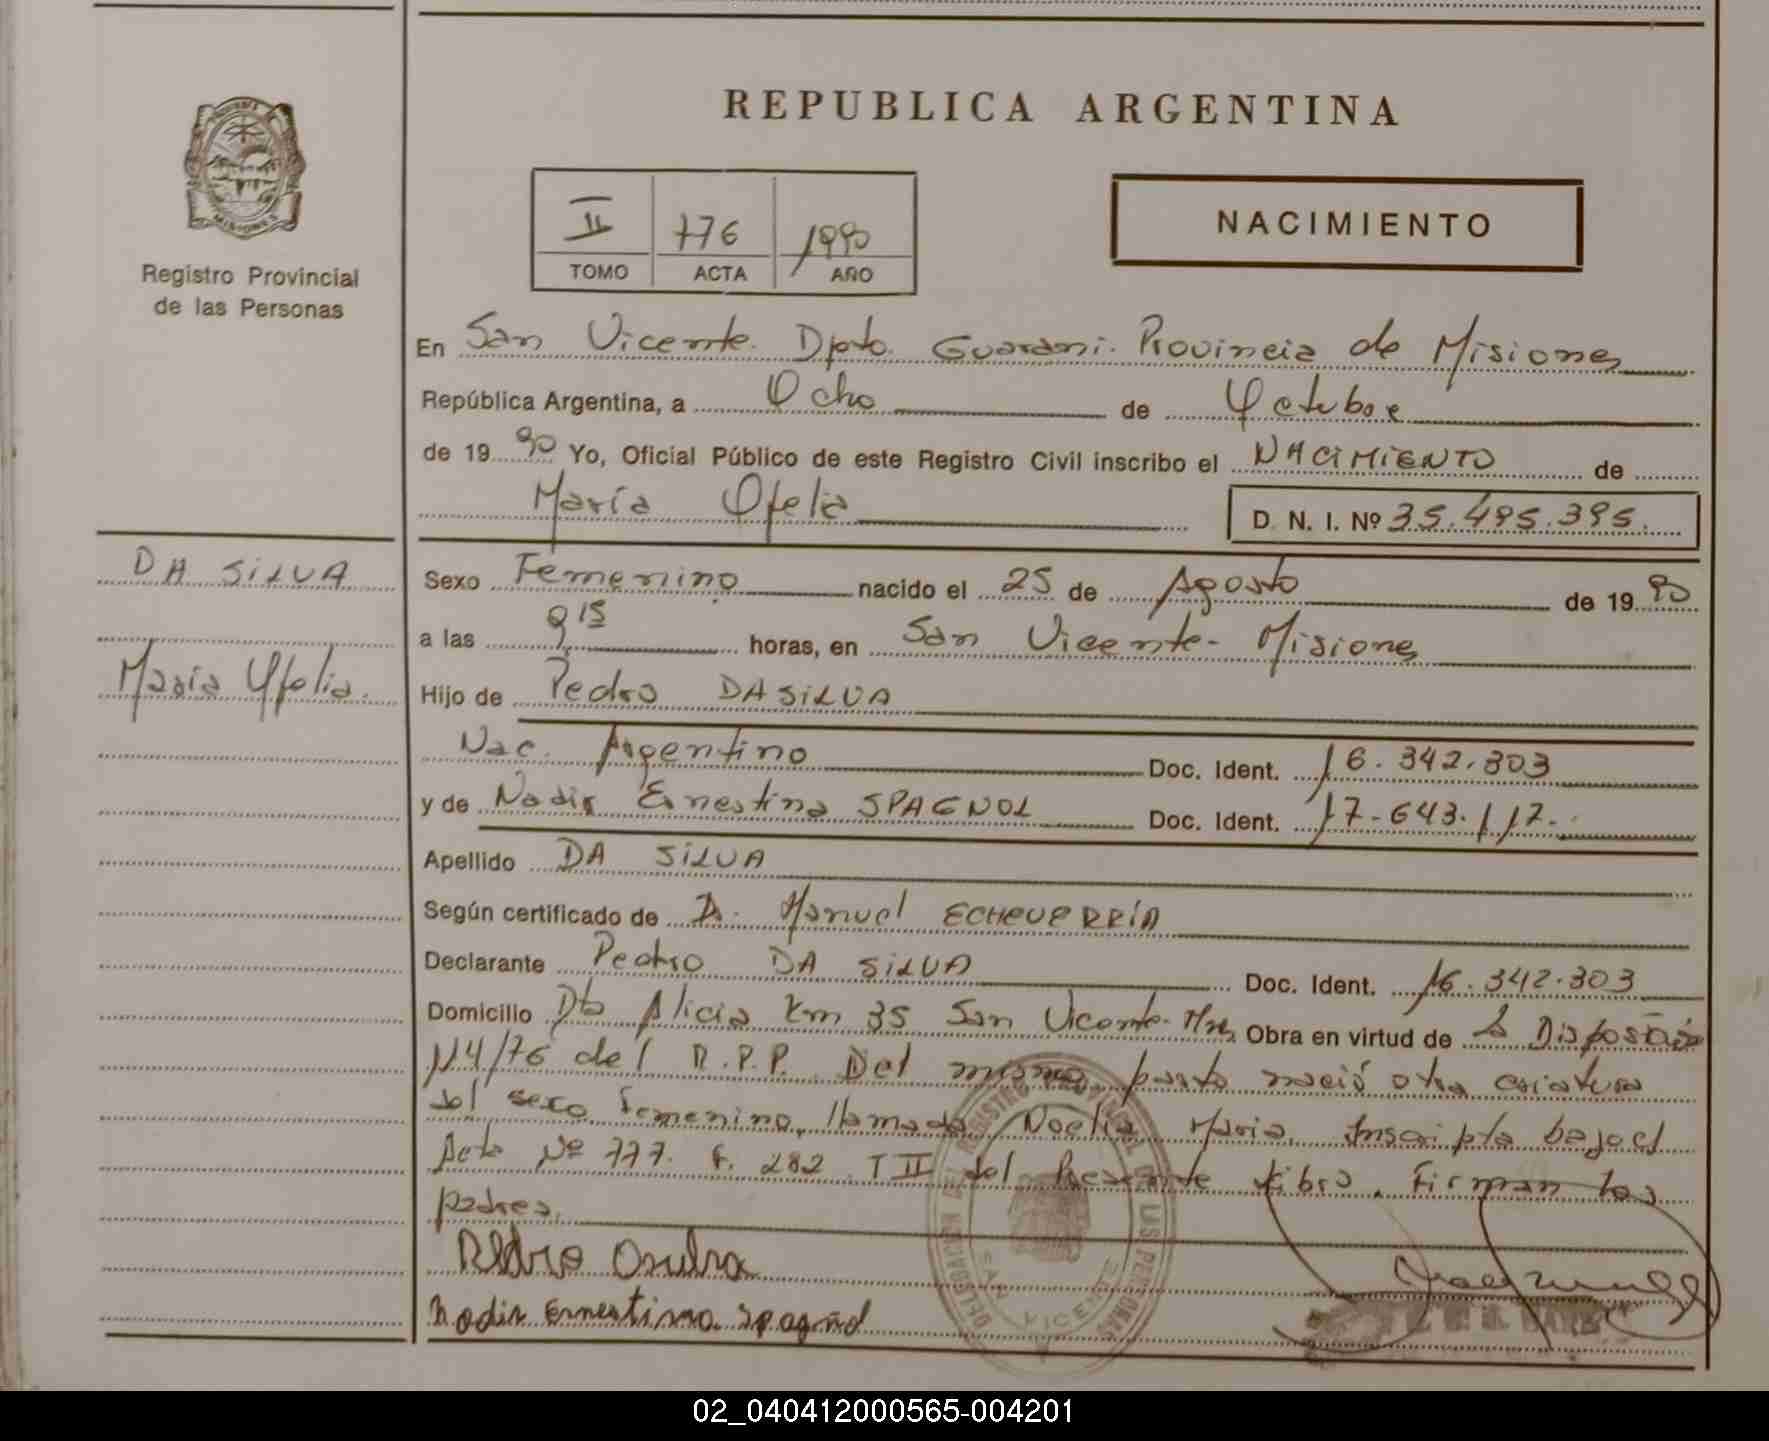 REPUBLICA ARGENTINA
MISIONES
Registro Provincial
de las Personas
II 776 1990
TOMO ACTA AÑO
NACIMIENTO
En San Vicente. Dpto. Guarani. Provincia de Misiones
República Argentina, a Ocho de Octubre
de 1990 Yo, Oficial Público de este Registro Civil inscribo el NACIMIENTO de
María Ofelia D. N. I. Nº 35.495.395.
DA SILVA
María Ofelia.
Sexo Femenino nacido el 25 de Agosto de 1990
a las 9,15 horas, en San Vicente - Misiones
Hijo de Pedro DA SILVA
Nac. Argentino Doc. Ident. 16.342.303
y de Nadir Ernestina SPAGNOL Doc. Ident. 17-643.117.
Apellido DA SILVA
Según certificado de Manuel ECHEVERRÍA
Declarante Pedro DA SILVA Doc. Ident. 16.342.303
Domicilio Dto Alicia Km 35 San Vicente-Mnes Obra en virtud de la
114/76 del R.P.P. Del mismo parto nació otra criatura
del sexo Femenino, llamada Noelia María. Inscripta bajo el
Acta Nº 777. F. 282 T II del Presente Libro. Firman los
padres.
Nadir Ernestina Spagnol
DELEGACION DEL REGISTRO PROVINCIAL DE LAS PERSONAS
SAN VICENTE
02_040412000565-004201